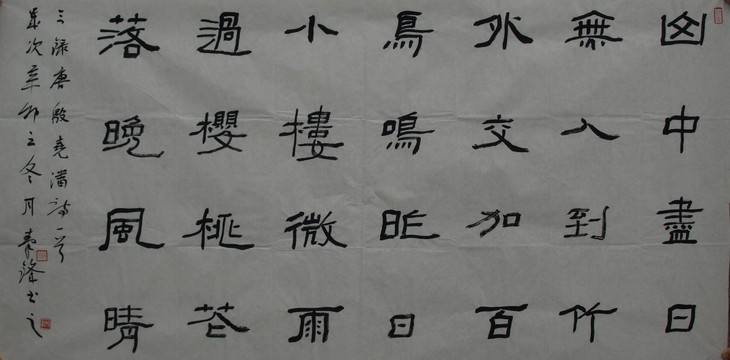 中盡日
無人到竹
外交加百
鳥鳴昨日
小樓微雨
過櫻桃花
落晚風晴
録唐殷堯藩詩一首
歲次辛卯立冬月
鋒書之